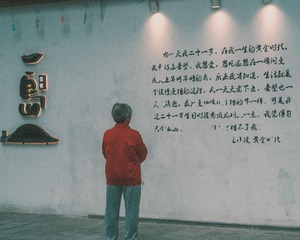 那一天我二十一岁，在我一生的黄金时代，
我有好多奢望。我想爱，想吃，还想在一瞬间变
成天上半明半暗的云，后来我才知道，生活就是
个缓慢受锤的过程，人一天天老下去，奢望也一
消逝，最后 的牛一样，可是我
过二十一岁生日时没有预见到这一点。我觉得
锤不了我。
王小波 黄金时代